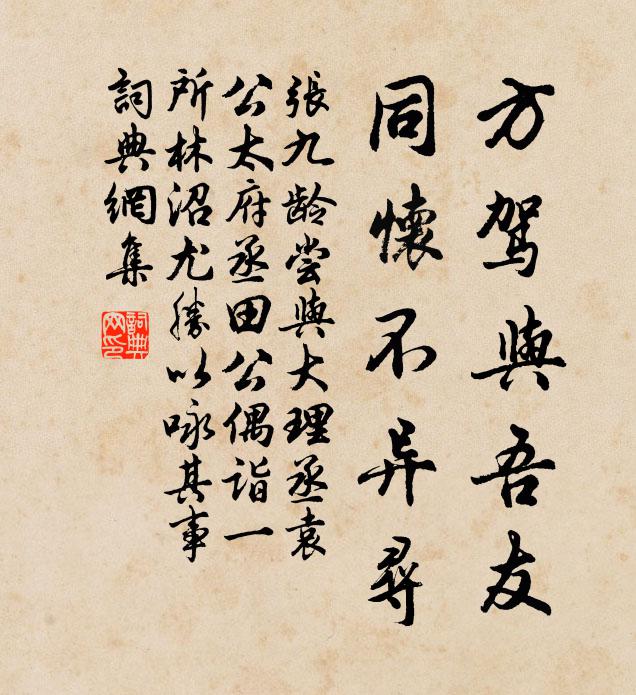 方驾與吾友
同懷不异尋
張九龄嘗與大理丞袁
公太府丞田公偶詣一
所林沼尤勝以咏其事
詞典網集
詞典
网印